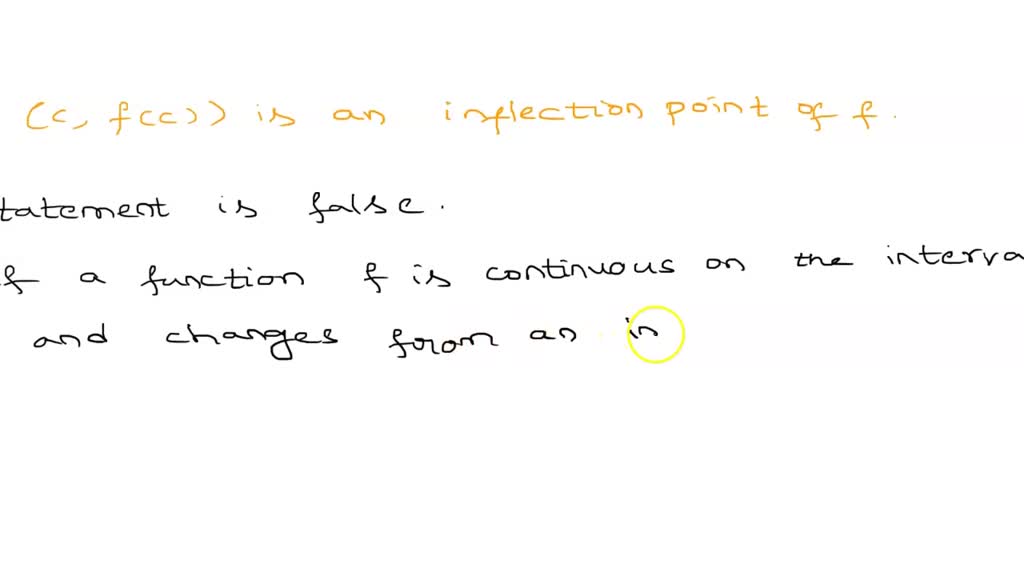 (c, f(c)) is an inflection point of f.
tatement is false.
f a function f is continuous on the interva
and changes from an in